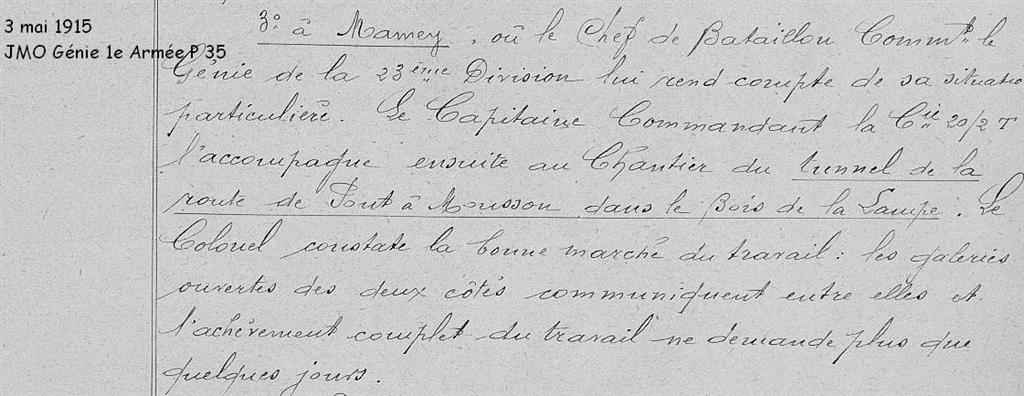 3 mai 1915
JMO Génie 1e Armée P 35
3° à Mamey, où le Chef de Bataillon Commt le
Génie de la 23ème Division lui rend compte de sa situatio
particulière. Le Capitaine Commandant la Cie 20/2 T
l'accompagne ensuite au Chantier du tunnel de la
route de Pont à Mousson dans le Bois de la Lampe. Le
Colonel constate la bonne marche du travail : les galeries
ouvertes des deux côtés communiquent entre elles et
l'achèvement complet du travail ne demande plus que
quelques jours.